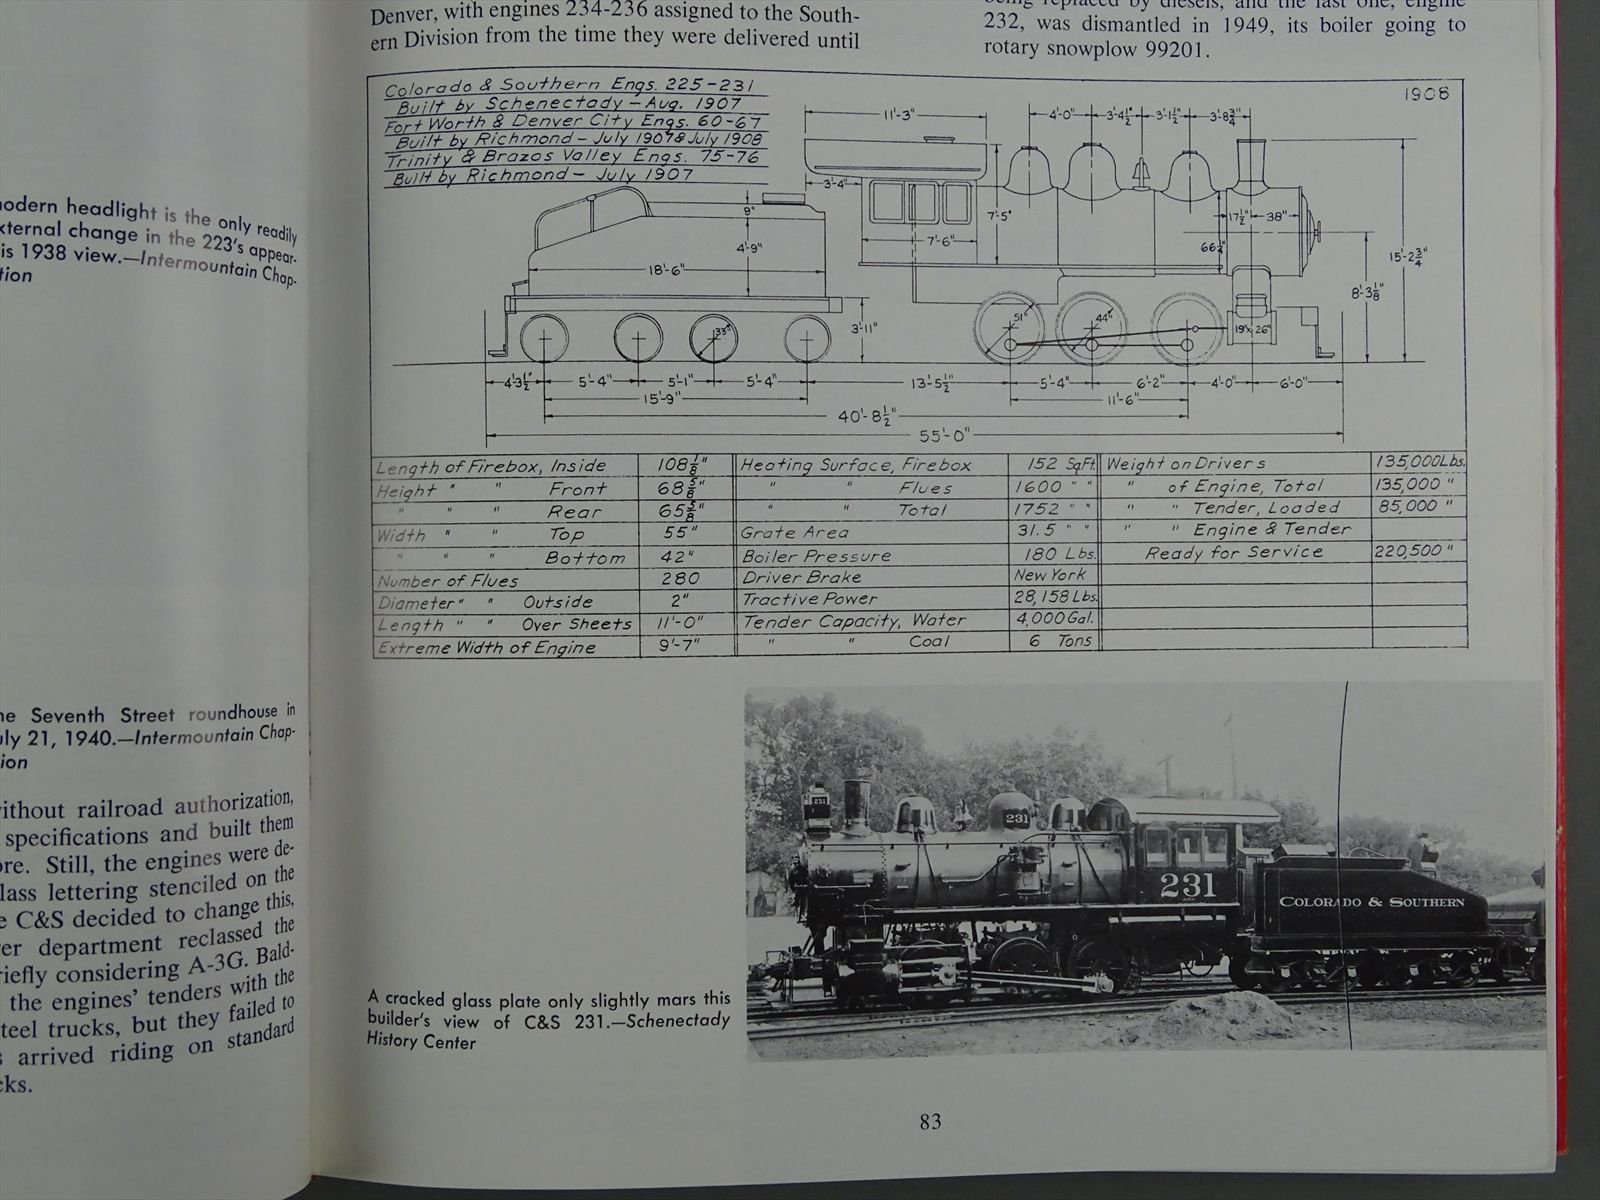 modern headlight is the only readily
external change in the 223's appear-
is 1938 view.—Intermountain Chap-
tion
he Seventh Street roundhouse in
uly 21, 1940.—Intermountain Chap-
ion
without railroad authorization,
specifications and built them
ore. Still, the engines were de-
lass lettering stenciled on the
e C&S decided to change this,
er department reclassed the
riefly considering A-3G. Bald-
the engines' tenders with the
steel trucks, but they failed to
s arrived riding on standard
cks.
Denver, with engines 234-236 assigned to the South-
ern Division from the time they were delivered until
being replaced by diesels, and the last one, engine
232, was dismantled in 1949, its boiler going to
rotary snowplow 99201.
Colorado & Southern Engs. 225-231
Built by Schenectady - Aug. 1907
Fort Worth & Denver City Engs. 60-67
Built by Richmond - July 1907 & July 1908
Trinity & Brazos Valley Engs. 75-76
Built by Richmond - July 1907
1908
11'-3" 4'-0" 3'-4½" 3'-1½" 3'-8¾"
3'-4"
9" 7'-5" 17½" 38"
4'-9" 7'-6" 66¼" 15'-2¾"
18'-6" 8'-3⅛"
33" 3'-11" 51" 44" 19"x 26"
4'-3½" 5'-4" 5'-1" 5'-4" 13'-5½" 5'-4" 6'-2" 4'-0" 6'-0"
15'-9" 11'-6"
40'-8½"
55'-0"
Length of Firebox, Inside 108⅛" Heating Surface, Firebox 152 Sq.Ft. Weight on Drivers 135,000 Lbs.
Height " " Front 68⅝" " " Flues 1600 " " " of Engine, Total 135,000 "
" " " Rear 65⅝" " " Total 1752 " " " " Tender, Loaded 85,000 "
Width " " Top 55" Grate Area 31.5 " " " " Engine & Tender
" " " Bottom 42" Boiler Pressure 180 Lbs. Ready for Service 220,500 "
Number of Flues 280 Driver Brake New York
Diameter " " Outside 2" Tractive Power 28,158 Lbs.
Length " " Over Sheets 11'-0" Tender Capacity, Water 4,000 Gal.
Extreme Width of Engine 9'-7" " " Coal 6 Tons
231
231
231
COLORADO & SOUTHERN
A cracked glass plate only slightly mars this
builder's view of C&S 231.—Schenectady
History Center
83